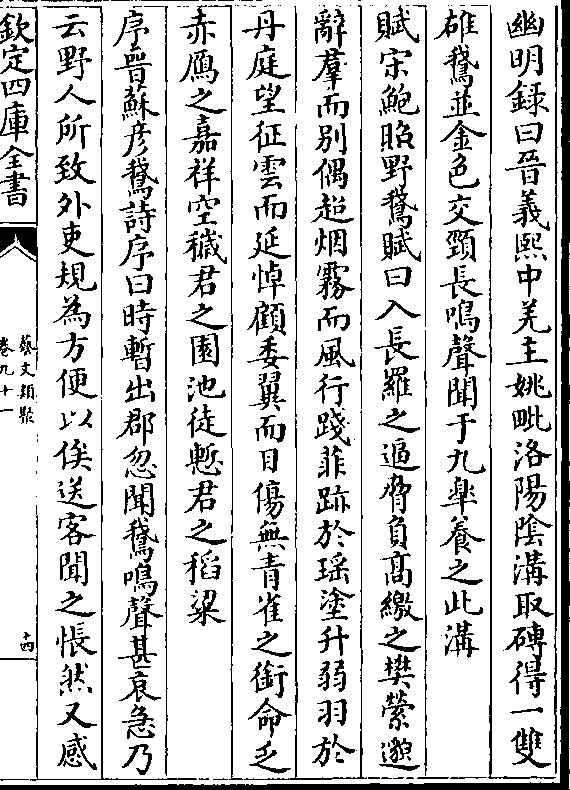 幽明録曰晉義熙中羌主姚毗洛陽陰溝取磚得一雙
雄鵞並金色交頸長鳴聲聞于九臯養之此溝
賦宋鮑昭野鵞賦曰入長羅之逼脅負高繳之樊縈邈
辭羣而别偶超烟霧而風行踐菲跡於瑶塗升弱羽於
丹庭望征雲而延悼顧委翼而自傷無青雀之銜命乏
赤鴈之嘉祥空穢君之園池徒慙君之稻粱
序晉蘇彦鵞詩序曰時暫出郡忽聞鵞鳴聲甚哀急乃
云野人所致外吏規為方便以俟送客聞之悵然又感
欽定四庫全書
藝文類聚
卷九十一
十四